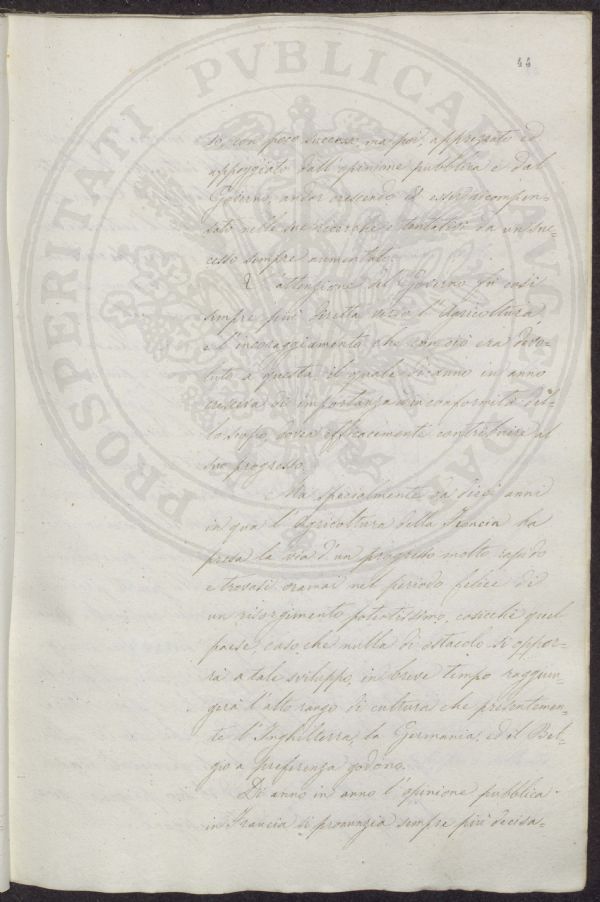 44
PROSPERITATI PVBLICAE AVGENDAE
so, con poco successo, ma poi, apprezzato ed
appoggiato dall'opinione pubblica e dal
Governo, andar crescendo ed esser ricompen-
sato nelle sue ricerche e tentativi da un suc-
cesso sempre aumentato.
L'attenzione del Governo fù così
sempre più diretta verso l'Agricoltura
e l'incoraggiamento che con ciò era devo-
luto a questa, il quale di anno in anno
cresceva di importanza e in conformità del-
lo scopo, dovea efficacemente contribuire al
suo progresso.
Ma specialmente da dieci anni
in qua l'agricoltura della Francia ha
presa la via d'un progresso molto rapido
e trovasi oramai nel periodo felice di
un risorgimento potentissimo, cosicchè quel
paese, caso che nulla di ostacolo si oppor-
rà a tale sviluppo, in breve tempo raggiun-
gerà l'alto rango di cultura che presentemen-
te l'Inghilterra, la Germania, ed il Bel-
gio a preferenza godono.
Di anno in anno l'opinione pubblica
in Francia si pronunzia sempre più decisa-